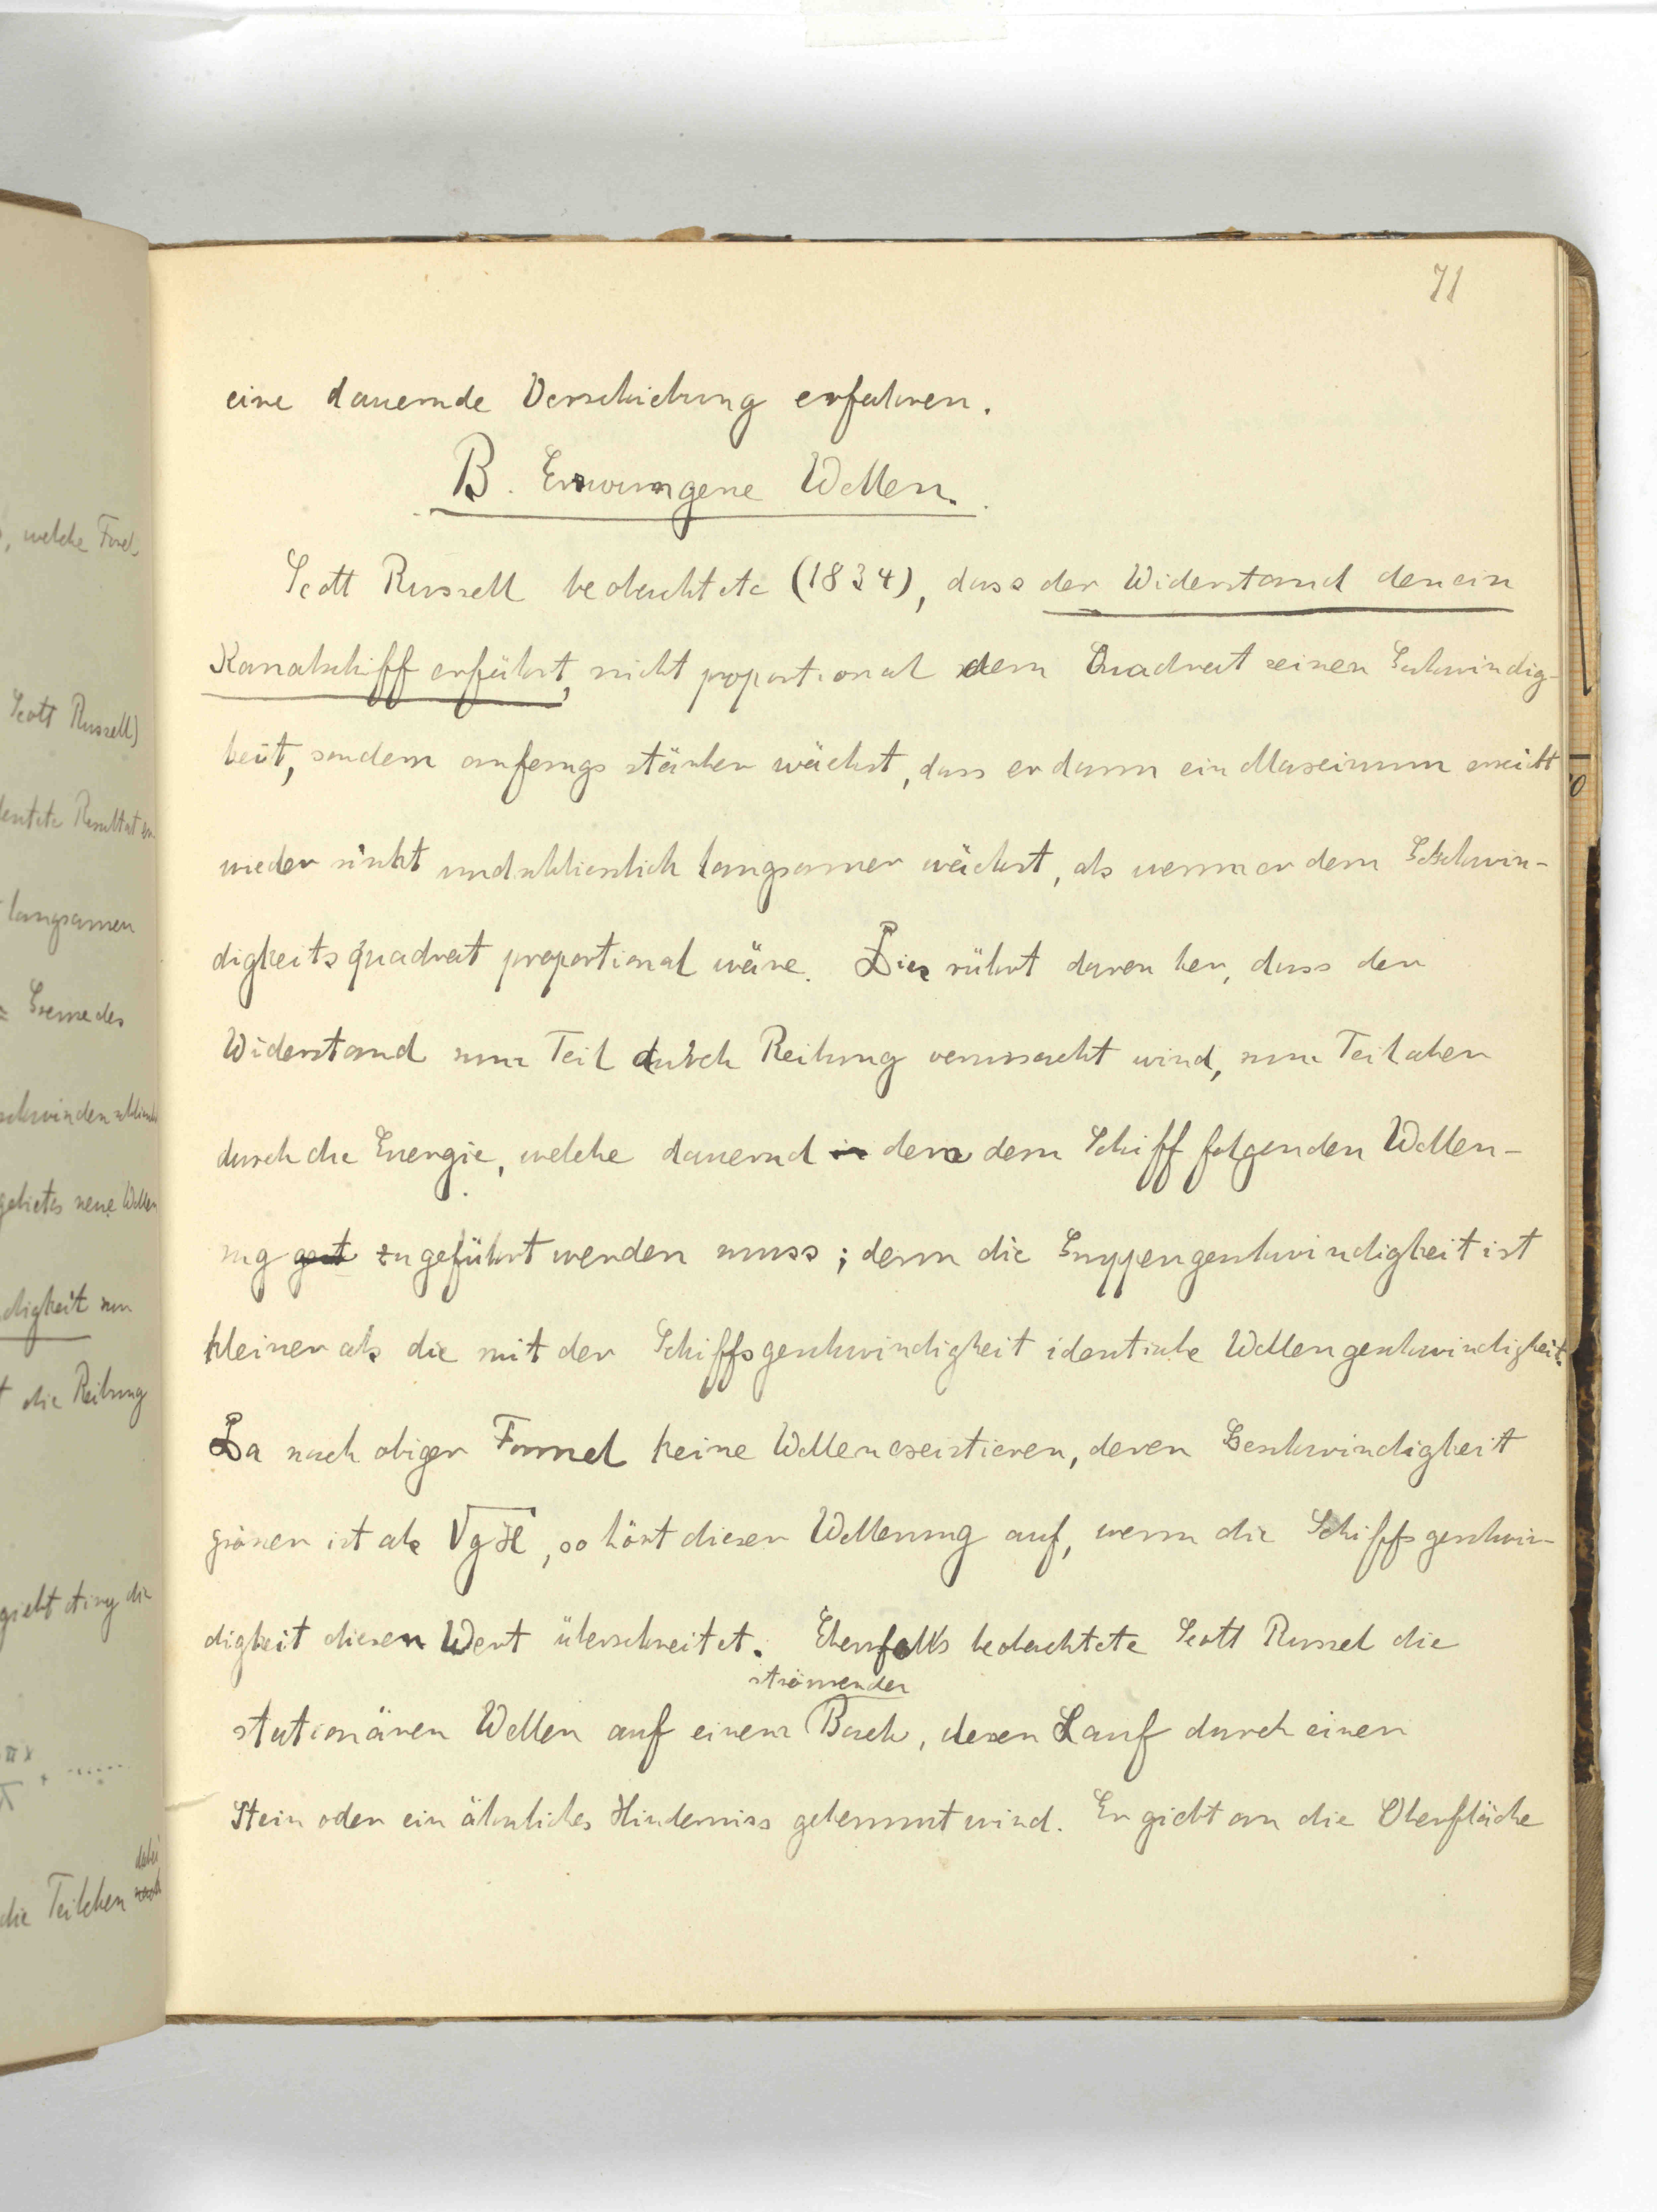 71
eine dauernde Verschiebung erfahren.
B. Erzwungene Wellen.
Scott Russell beobachtete (1834), dass der Widerstand den ein
Kanalschiff erfährt, nicht proportional dem Quadrat seiner Geschwindig-
keit, sondern anfangs stärker wächst, dass er dann ein Maximum erreicht
wieder sinkt und schliesslich langsamer wächst, als wenn er dem Geschwin-
digkeitsquadrat proportional wäre. Dies rührt daher her, dass der
Widerstand zum Teil durch Reibung verursacht wird, zum Teil aber
durch die Energie, welche dauernd in dem dem Schiff folgenden Wellen-
zug zugeführt werden muss; denn die Gruppengeschwindigkeit ist
kleiner als die mit der Schiffsgeschwindigkeit identische Wellengeschwindigkeit.
Da nach obiger Formel keine Wellen existieren, deren Geschwindigkeit
grösser ist als √gH, so hört dieser Wellenzug auf, wenn die Schiffsgeschwin-
digkeit diesen Wert überschreitet. Ebenfalls beobachtete Scott Russel die
strömender
stationären Wellen auf einem Bach, dessen Lauf durch einen
Stein oder ein ähnliches Hinderniss gehemmt wird. Er giebt an die Oberfläche
, welche Forel
Scott Russell)
deutete Resultat
langsamen
= Grenze des
schwinden
gebietes neue Wellen
digkeit
die Reibung
giebt
die Teilchen
dabei
nach